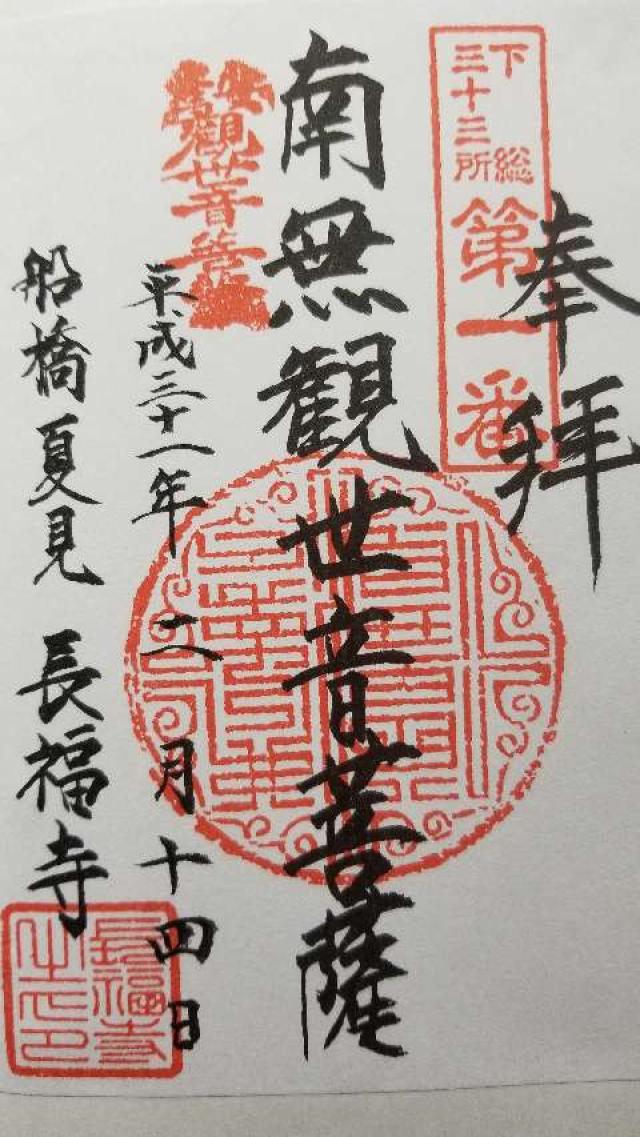 奉拝
下総
三十三所
第一番
南無観世音菩薩
平成三十一年二月十四日
船橋夏見 長福寺
長福寺
之印